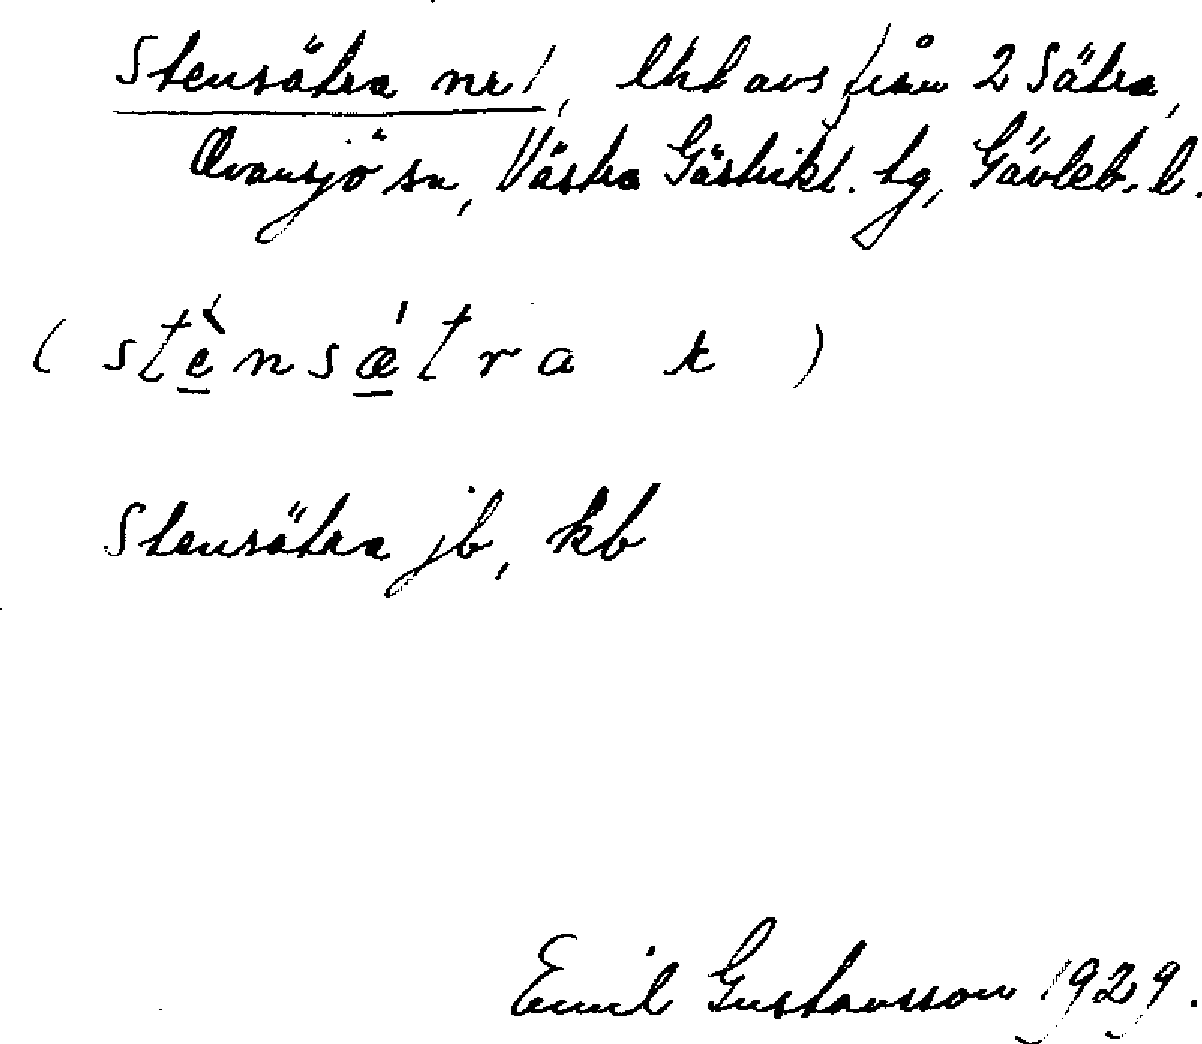 Stensätra nr 1, lht avs från 2 Sätra,
Ovansjö sn, Västra Gästrikl. tg, Gävleb. l.
( stè̲nsǽ̲tra k )
Stensätra jb, kb
Emil Gustavsson 1929.